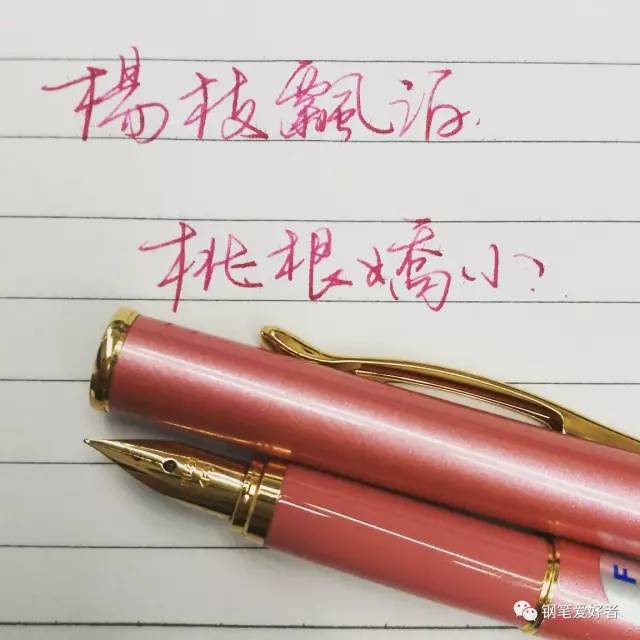 楊枝飄泊.
桃根嬌小.
F
钢笔爱好者